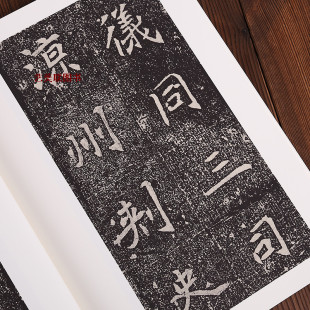 儀同三司
涼州刺史